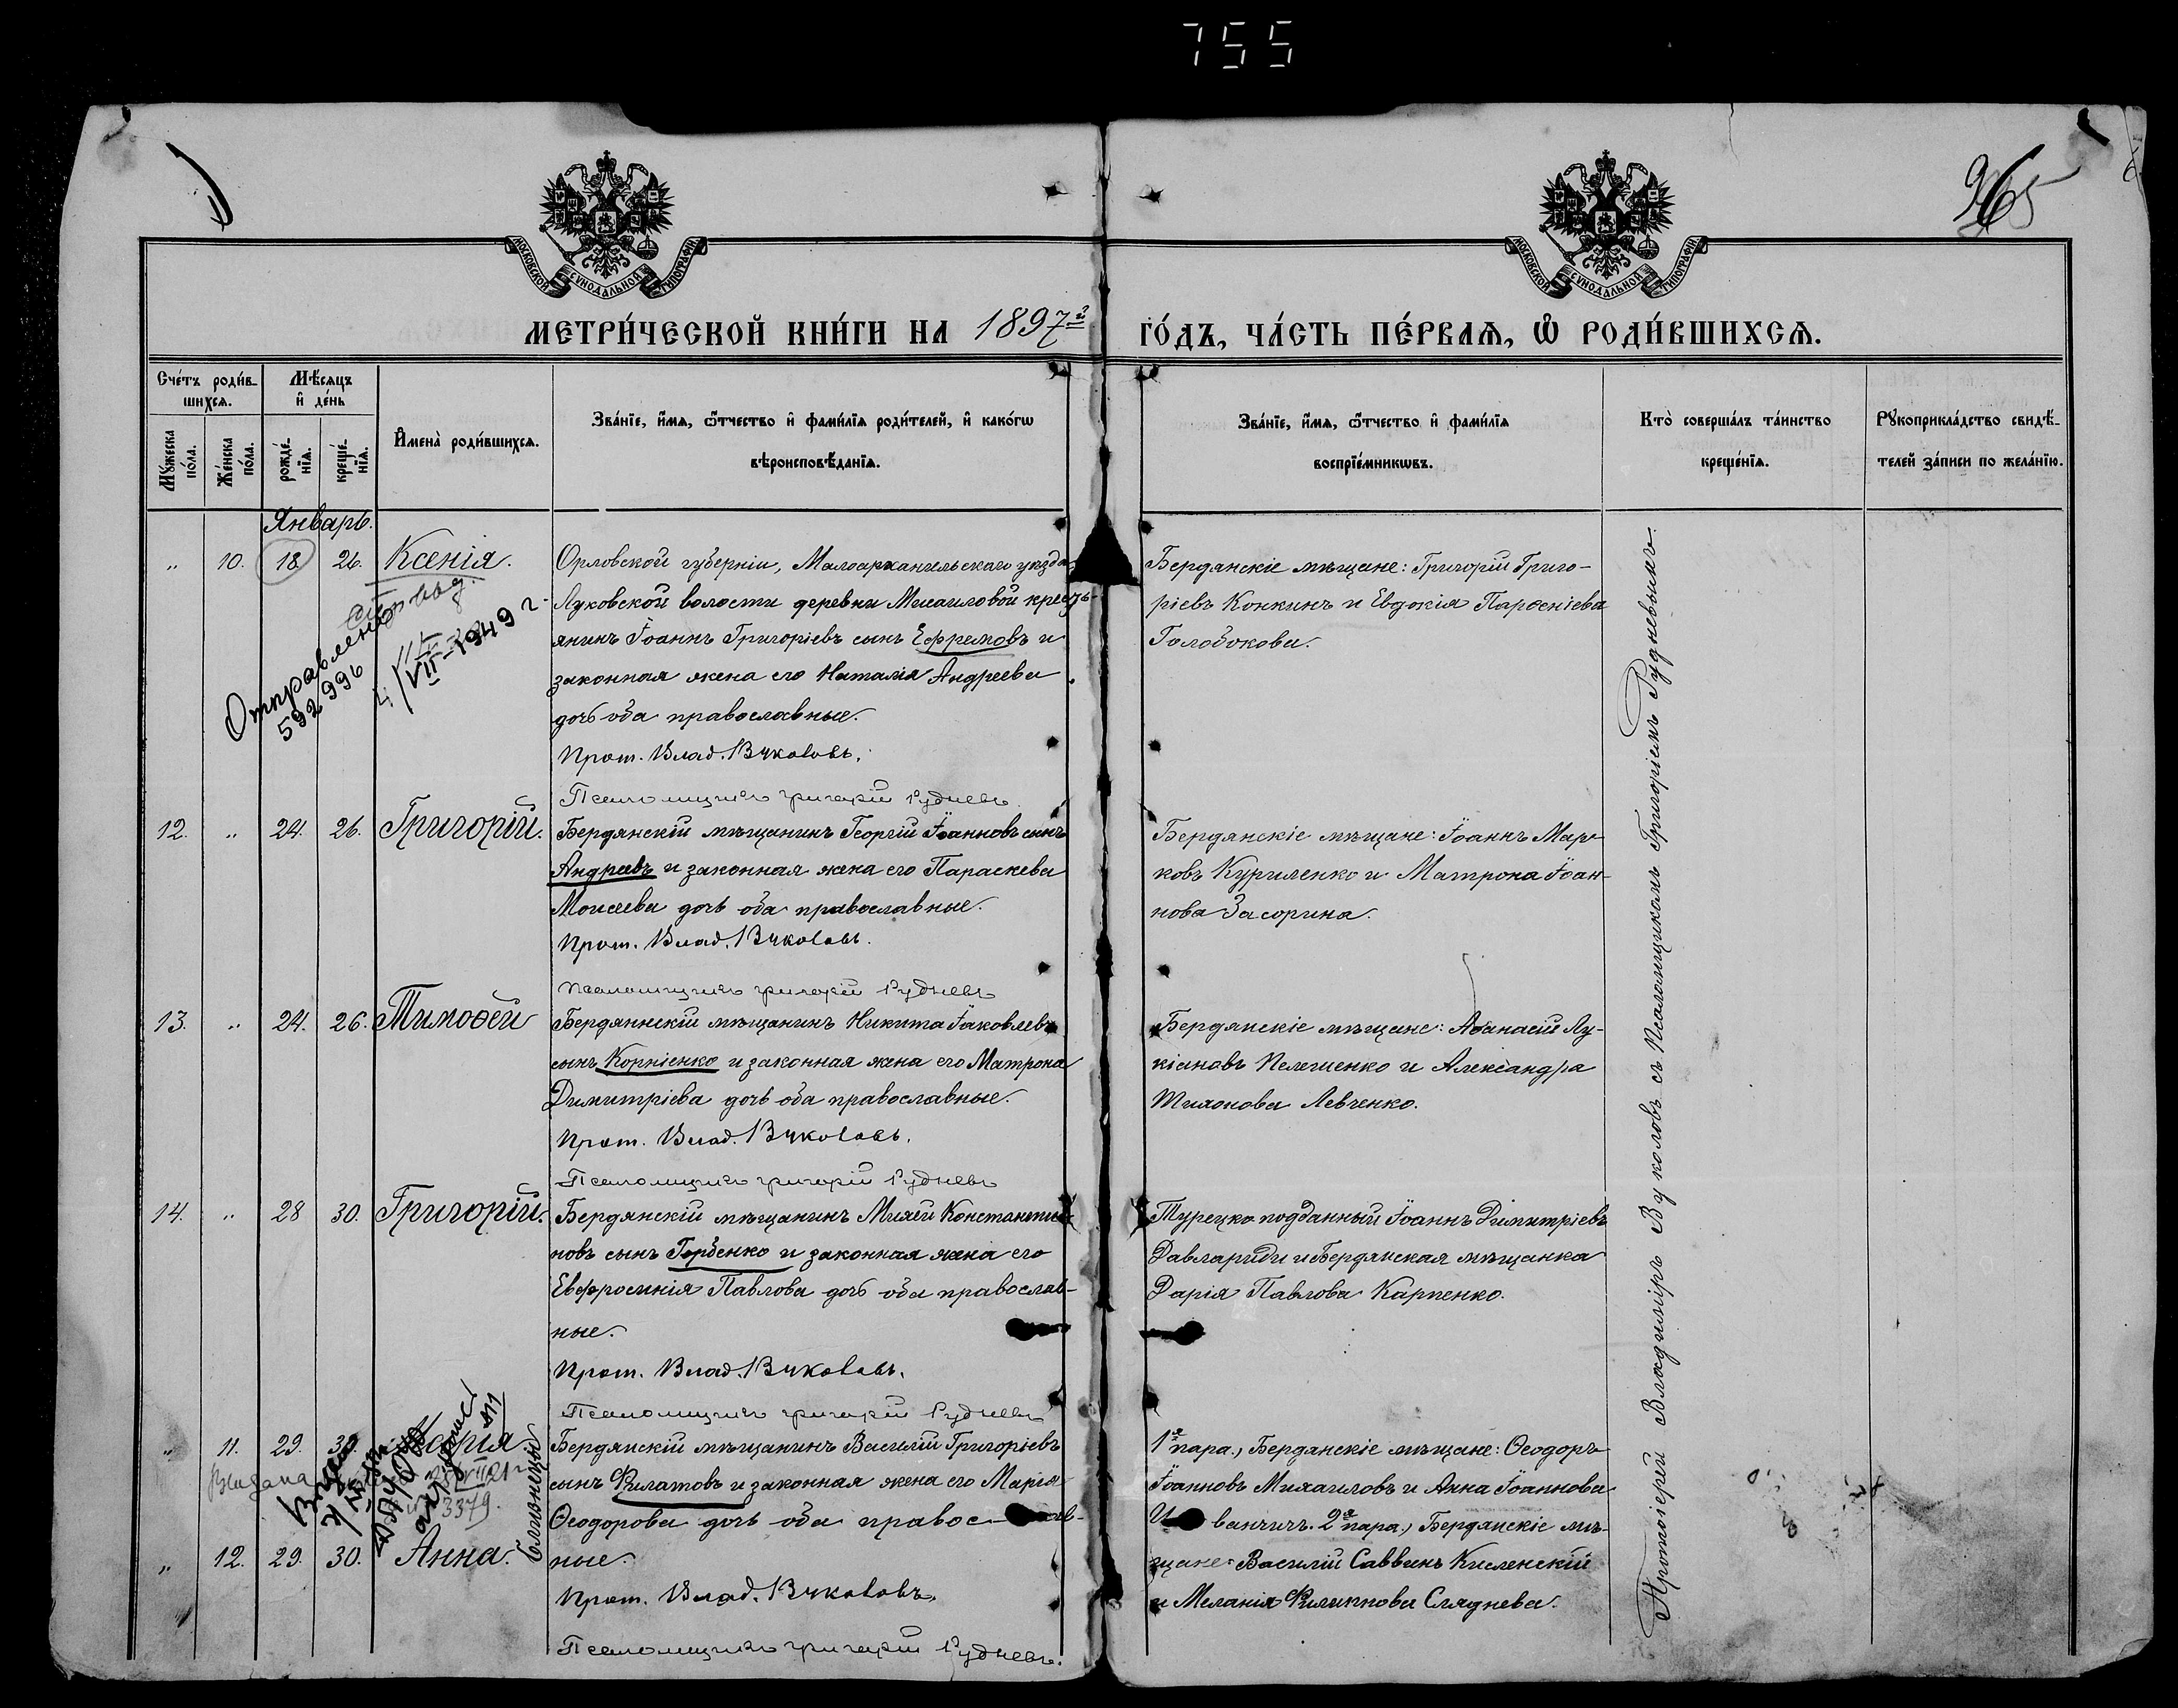 755
965
МОСКОВСКОЙ СѴНОДАЛЬНОЙ ТИПОГРАФІИ
МОСКОВСКОЙ СѴНОДАЛЬНОЙ ТИПОГРАФІИ
МЕТРИ́ЧЕСКОЙ КНИ́ГИ НА 1897 г.
ГО́ДЪ, ЧА́СТЬ ПЕ́РВАѦ, Ѿ РОДИ́ВШИХСѦ.
Сче́тъ роди́в-
шихсѧ.
Мѣ́сѧцъ
и҆ де́нь
Мꙋ́жеска по́ла.
Же́нска по́ла.
рожде́-
нїѧ.
креще́-
нїѧ.
И҆мена̀ роди́вшихсѧ.
Зва́нїе, и҆́мѧ, ѻ҆́тчество и҆ фами́лїѧ роди́телей, и҆ како́гѡ
вѣроисповѣ́данїѧ.
Зва́нїе, и҆́мѧ, ѻ҆́тчество и҆ фами́лїѧ
воспрїе́мникѡвъ.
Кто̀ соверша́лъ та́инство
креще́нїѧ.
Рꙋкоприкла́дство свидѣ́-
телей за́писи по жела́нїю.
Январь.
„ 10. 18 26. Ксенія.
Отправлено
592996
VII-1949 г.
Орловской губерніи, Малоархангельскаго уѣзда
Луковской волости деревни Мисаиловой кресть-
янинъ Іоаннъ Григоріевъ сынъ Ефремовъ и
законная жена его Наталія Андреева
дочь оба православные.
Прот. Влад. Вуколовъ.
Псаломщикъ Григорій Рудневъ
Бердянскіе мѣщане: Григорій Григо-
ріевъ Конкинъ и Евдокія Парѳеніева
Голобокова.
12. „ 24. 26. Григорій.
Бердянскій мѣщанинъ Георгій Іоанновъ сынъ
Андреевъ и законная жена его Параскева
Моисеева дочь оба православные.
Прот. Влад. Вуколовъ.
Псаломщикъ Григорій Рудневъ
Бердянскіе мѣщане: Іоаннъ Мар-
ковъ Куриленко и Матрона Іоан-
нова Засорина.
13. „ 24. 26. Тимоѳей
Бердянскій мѣщанинъ Никита Іаковлевъ
сынъ Корніенко и законная жена его Матрона
Димитріева дочь оба православные.
Прот. Влад. Вуколовъ.
Псаломщикъ Григорій Рудневъ
Бердянскіе мѣщане: Аѳанасій Лу-
кіановъ Пелешенко и Александра
Тихонова Левченко.
14. „ 28 30. Григорій.
Бердянскій мѣщанинъ Михей Константи-
новъ сынъ Горбенко и законная жена его
Евфросинія Павлова дочь оба православ-
ные.
Прот. Влад. Вуколовъ.
Псаломщикъ Григорій Рудневъ
Турецко подданный Іоаннъ Димитріевъ
Давлариди и Бердянская мѣщанка
Дарія Павлова Карпенко.
„ 11. 29. 30. Марія
3379.
„ 12. 29. 30. Анна.
близнецы
Бердянскій мѣщанинъ Василій Григоріевъ
сынъ Филатовъ и законная жена его Марія
Ѳеодорова дочь оба православ-
ные.
Прот. Влад. Вуколовъ.
Псаломщикъ Григорій Рудневъ.
1я пара.) Бердянскіе мѣщане: Ѳеодоръ
Іоанновъ Михаиловъ и Анна Іоаннова
Иванчичъ. 2я пара.) Бердянскіе мѣ-
щане: Василій Саввинъ Кисленскій
и Меланія Филиппова Сляднева.
Протоіерей Владиміръ Вуколовъ съ Псаломщикомъ Григоріемъ Рудневымъ.